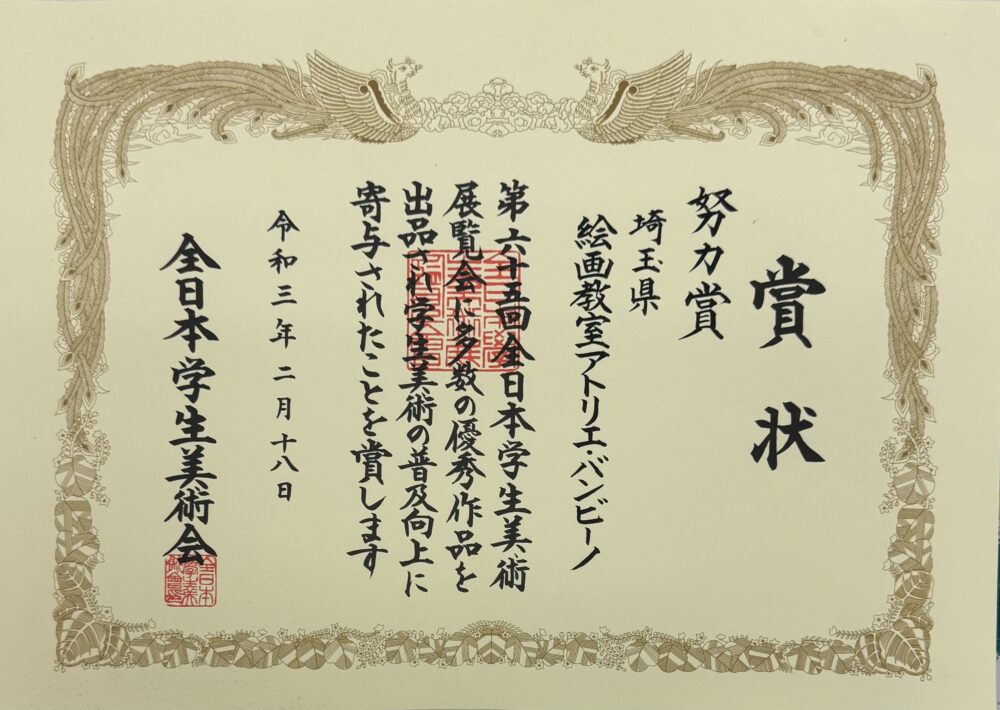 賞状
努力賞
埼玉県
絵画教室アトリエ・バンビーノ
第六十五回全日本学生美術
展覧会に多数の優秀作品を
出品され学生美術の普及向上に
寄与されたことを賞します
令和三年二月十八日
全日本学生美術会